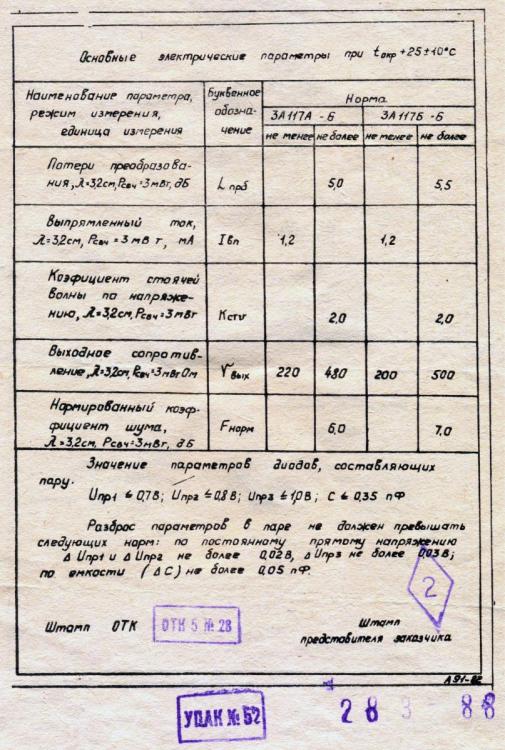 Основные электрические параметры при tокр +25±10°С
Наименование параметра,
режим измерения,
единица измерения
Буквенное
обозна-
чение
Норма
3А117А - Б
3А117Б - Б
не менее
не более
не менее
не более
Потери преобразова-
ния, λ=3,2см, Рсвч=3мВт, дБ
L прб
5,0
5,5
Выпрямленный ток,
λ=3,2см, Рсвч=3мВт, мА
Iвп
1,2
1,2
Коэфициент стоячей
волны по напряже-
нию, λ=3,2см, Рсвч=3мВт
Кстv
2,0
2,0
Выходное сопротив-
ление, λ=3,2см, Рсвч=3мВт Ом
rвых
220
480
200
500
Нормированный коэф-
фициент шума,
λ=3,2см, Рсвч=3мВт, дБ
Fнорм
6,0
7,0
Значение параметров диодов, составляющих
пару.
Uпр1 ≤ 0,7В; Uпр2 ≤ 0,8В; Uпр3 ≤ 1,0В; С ≤ 0,35 пФ
Разброс параметров в паре не должен превышать
следующих норм: по постоянному прямому напряжению
Δ Uпр1 и Δ Uпр2 не более 0,02В, Δ Uпр3 не более 0,03В;
по емкости (ΔС) не более 0,05 пФ.
2
Штамп ОТК
ОТК 5 № 28
Штамп
представителя заказчика
А91-82
УПАК № 52
28 3 88